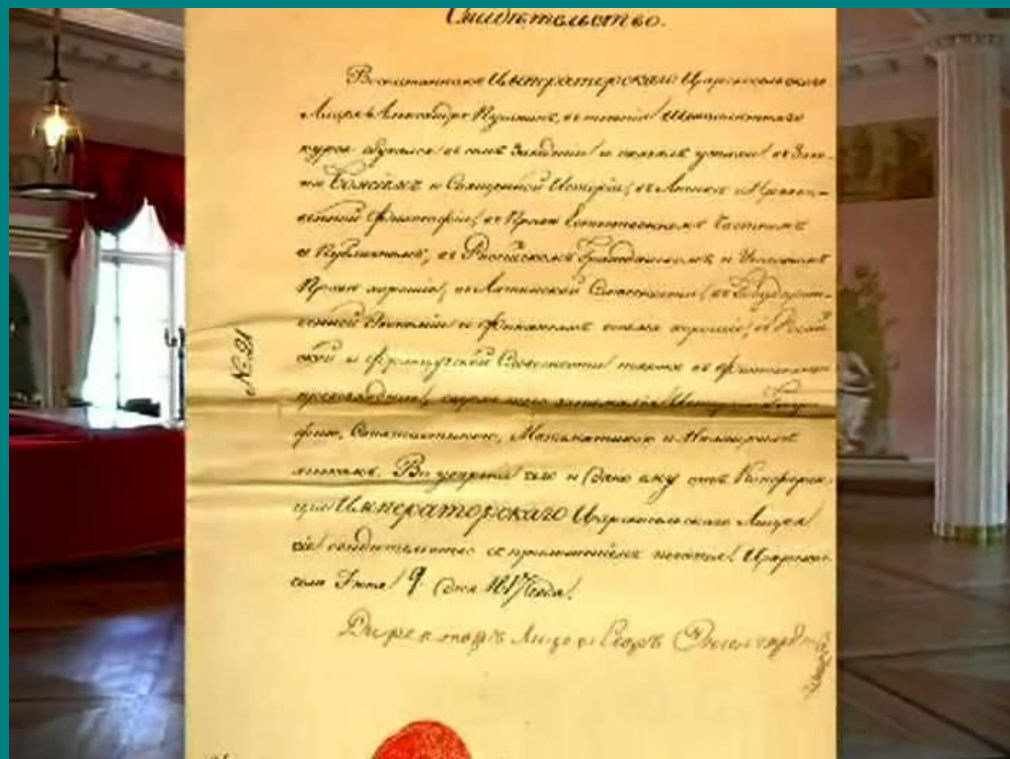 Свидѣтельство.
Воспитанникъ Императорскаго Царскосельскаго
Лицея Александръ Пушкинъ, въ теченіи шестилѣтняго
курса обучался въ семъ Заведеніи и оказалъ успѣхи: въ Зако-
нѣ Божіемъ и Священной Исторіи, въ Логикѣ и Нравст-
венной Философіи, въ Правѣ Естественномъ Частномъ
и Публичномъ, въ Россійскомъ Гражданскомъ и Уголовномъ
Правѣ хорошіе; въ Латинской Словесности, въ Государст-
венной Экономіи и Финансовъ весьма хорошіе; въ Россій-
ской и Французской Словесности также въ Фехтованіи
превосходные, сверхъ того занимался Исторіею, Геогра-
фіею, Статистикою, Математикою и Нѣмецкимъ
языкомъ. Во увѣреніе чего и дано ему отъ Конферен-
ціи Императорскаго Царскосельскаго Лицея
сіе свидѣтельство съ приложеніемъ печати. Царское
село Іюня 9 дня 1817 года.
Директоръ Лицея Егоръ Энгельгардтъ
№ 21